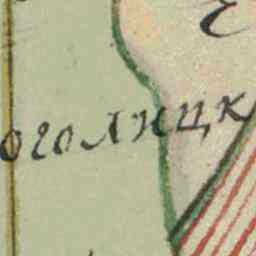 оголицк